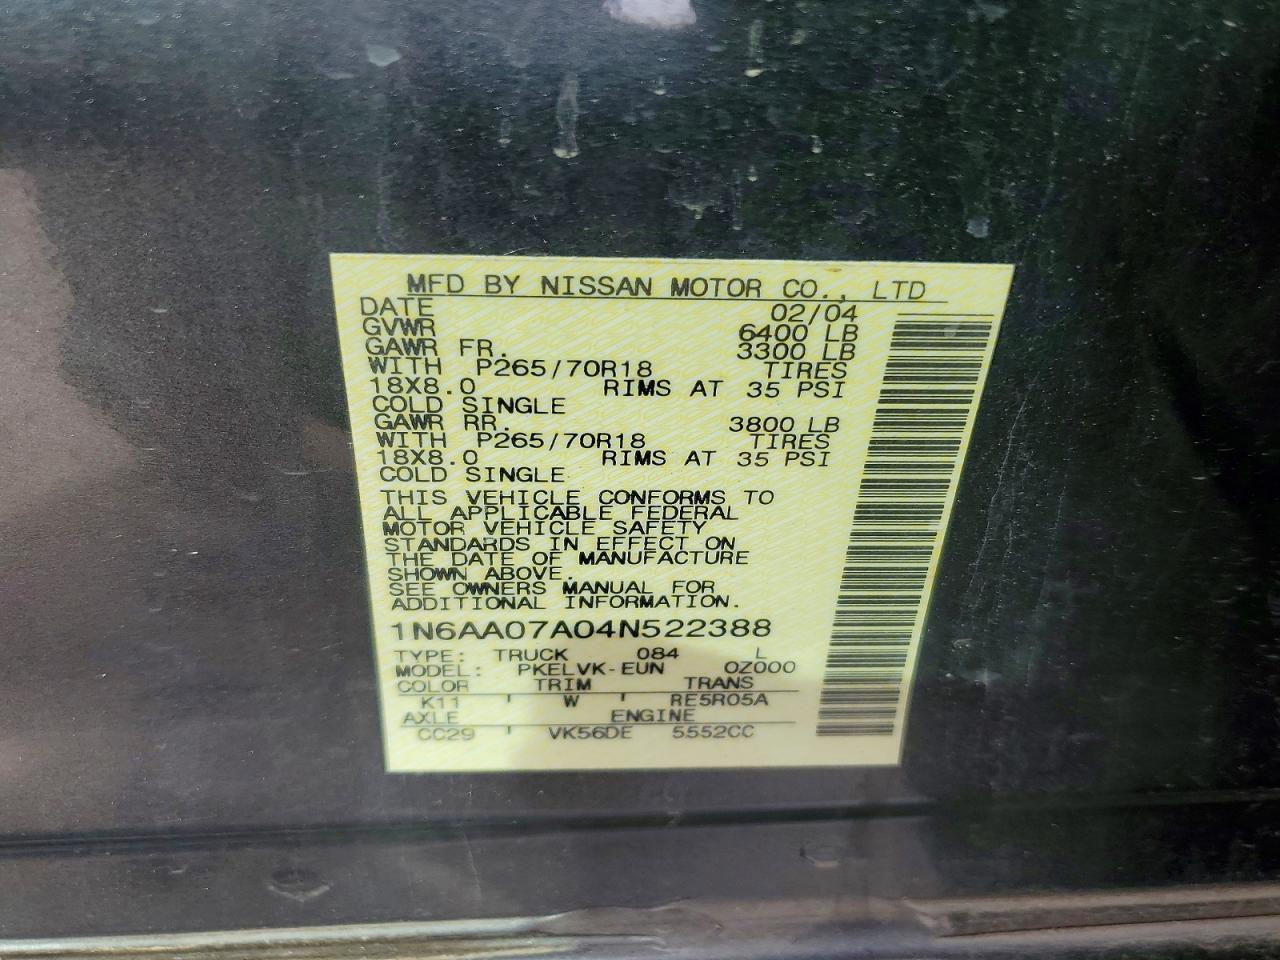 MFD BY NISSAN MOTOR CO., LTD
DATE 02/04
GVWR 6400 LB
GAWR FR. 3300 LB
WITH P265/70R18 TIRES
18X8.0 RIMS AT 35 PSI
COLD SINGLE
GAWR RR. 3800 LB
WITH P265/70R18 TIRES
18X8.0 RIMS AT 35 PSI
COLD SINGLE
THIS VEHICLE CONFORMS TO
ALL APPLICABLE FEDERAL
MOTOR VEHICLE SAFETY
STANDARDS IN EFFECT ON
THE DATE OF MANUFACTURE
SHOWN ABOVE.
SEE OWNERS MANUAL FOR
ADDITIONAL INFORMATION.
1N6AA07A04N522388
TYPE: TRUCK 084 L
MODEL: PKELVK-EUN 0Z000
COLOR TRIM TRANS
K11 ' W ' RE5R05A
AXLE ENGINE
CC29 ' VK56DE 5552CC